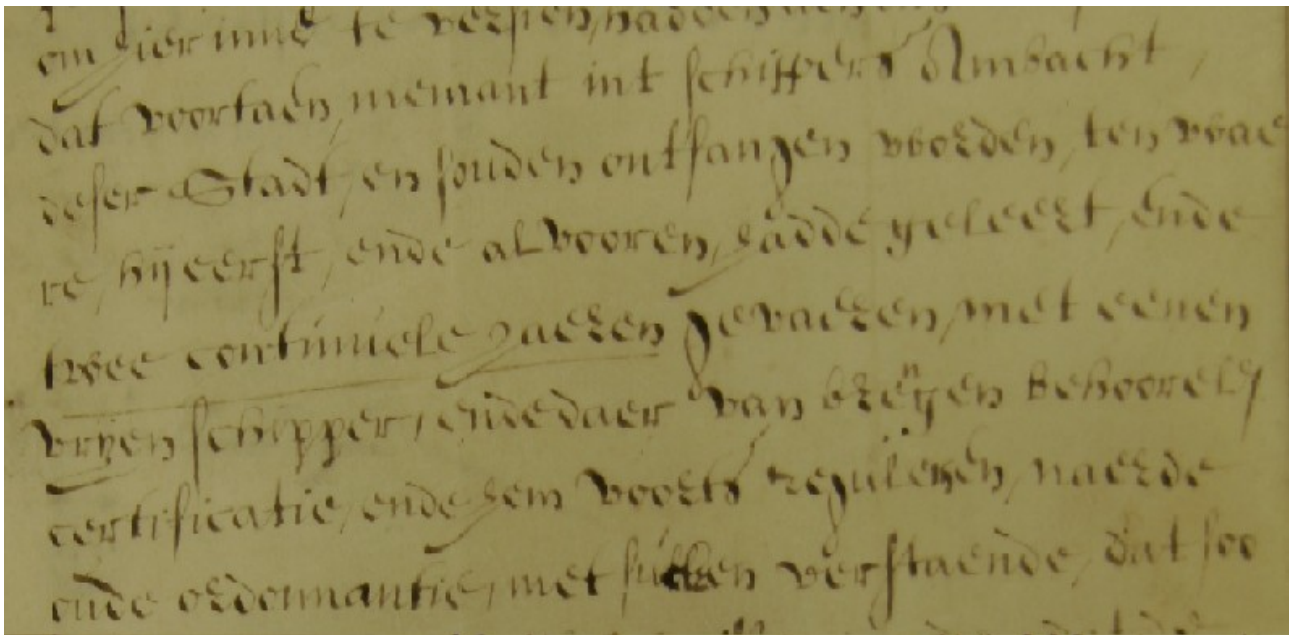 om hier inne te versien, hadden
dat voortaen, niemant int schippers Ambacht,
deser Stadt, en souden ontfangen worden, ten wae
re, hij eerst, ende alvooren, hadde geleert, ende
twee continuele Jaeren gevaeren, met eenen
vrijen schipper, ende daer van brengen behoorel:
certificatie, ende hem voorts reguleren, naerde
oude ordonnantie, met sulcken verstaende, dat soo